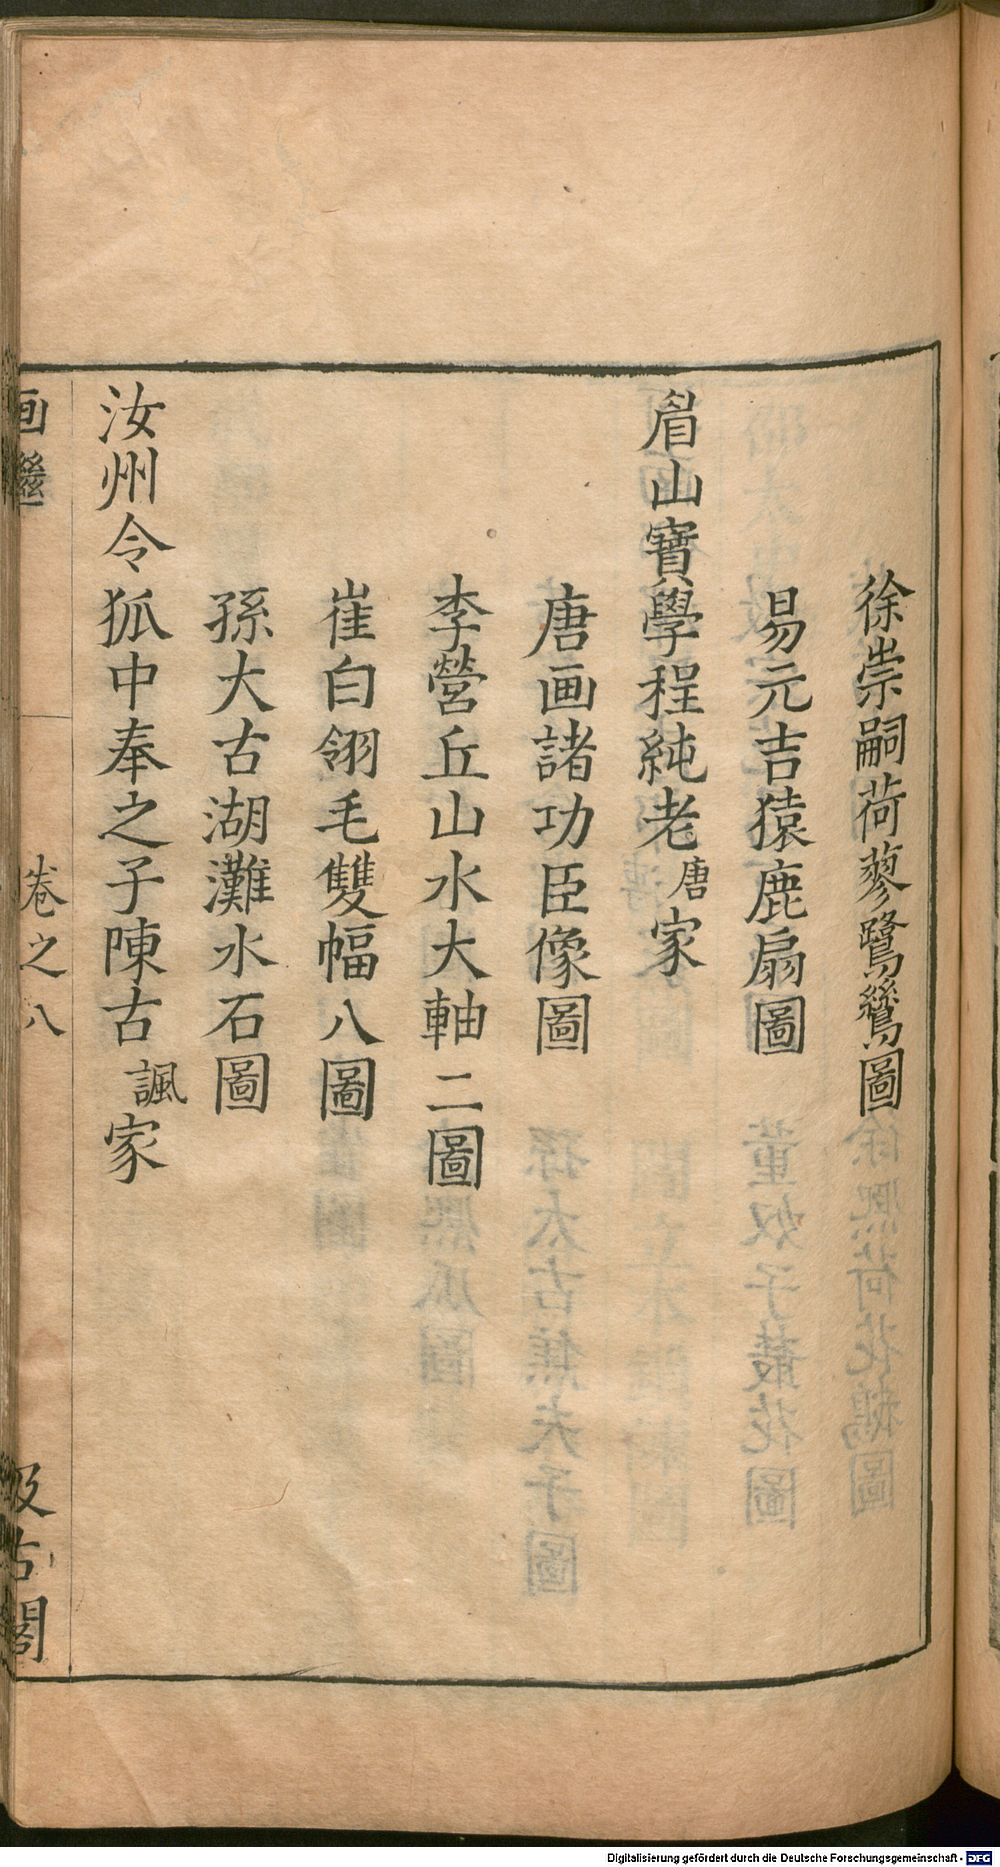 徐崇嗣荷蓼鷺鷥圖
易元吉猿鹿扇圖
眉山寶學程純老唐家
唐画諸功臣像圖
李營丘山水大軸二圖
崔白翎毛雙幅八圖
孫大古湖灘水石圖
汝州令狐中奉之子陳古諷家
画繼
卷之八
汲古閣
Digitalisierung gefördert durch die Deutsche Forschungsgemeinschaft - DFG